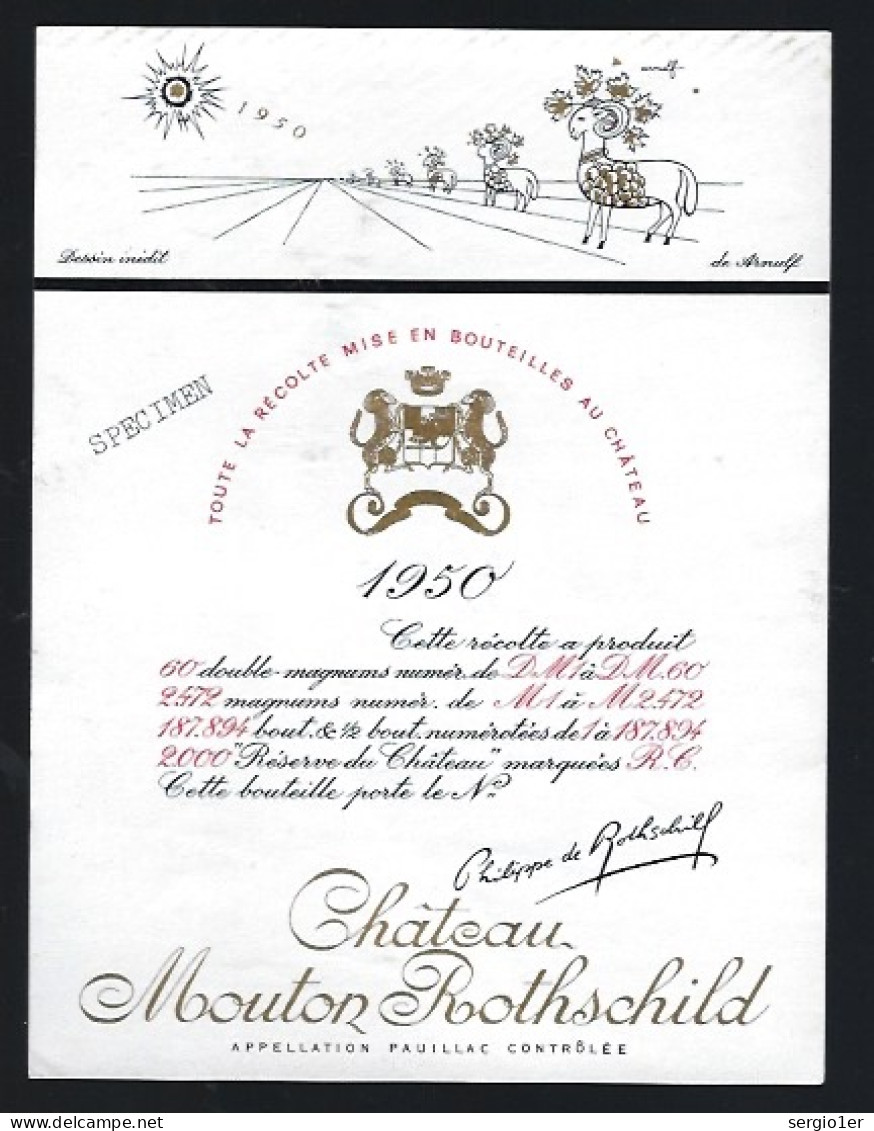 arnulf
1950
Dessin inédit
de Arnulf
SPECIMEN
TOUTE LA RÉCOLTE MISE EN BOUTEILLES AU CHÂTEAU
1950
Cette récolte a produit
60 double-magnums numér. de D.M1 à D.M.60
2472 magnums numér. de M1 à M2472
187.894 bout. & 1/2 bout. numérotées de 1 à 187.894
2.000 "Réserve du Château" marquées R.C.
Cette bouteille porte le No
Philippe de Rothschild
Château
Mouton Rothschild
APPELLATION PAUILLAC CONTRÔLÉE
delcampe.net
sergio1er